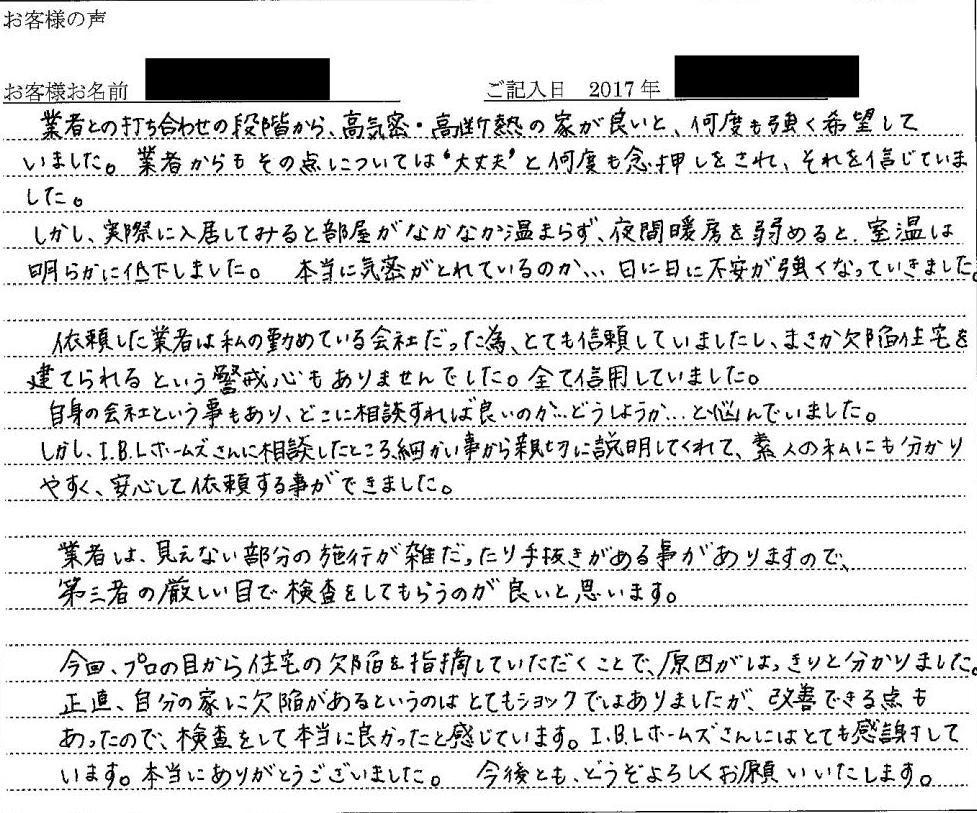 お客様の声
お客様お名前 ご記入日 2017年
業者との打ち合わせの段階から、高気密・高断熱の家が良いと、何度も強く希望して
いました。業者からもその点については“大丈夫”と何度も念押しをされ、それを信じていま
した。
しかし、実際に入居してみると部屋がなかなか温まらず、夜間暖房を弱めると、室温は
明らかに低下しました。 本当に気密がとれているのか… 日に日に不安が強くなっていきました。
依頼した業者は私の勤めている会社だった為、とても信頼していましたし、まさか欠陥住宅を
建てられるという警戒心もありませんでした。全て信用していました。
自身の会社という事もあり、どこに相談すれば良いのか…どうしようか…と悩んでいました。
しかし、I.B.Lホームズさんに相談したところ、細かい事から親切に説明してくれて、素人の私にも分かり
やすく、安心して依頼する事ができました。
業者は、見えない部分の施行が雑だったり手抜きがある事がありますので、
第三者の厳しい目で検査をしてもらうのが良いと思います。
今回、プロの目から住宅の欠陥を指摘していただくことで、原因がはっきりと分かりました。
正直、自分の家に欠陥があるというのはとてもショックではありましたが、改善できる点も
あったので、検査をして本当に良かったと感じています。I.B.Lホームズさんにはとても感謝して
います。本当にありがとうございました。 今後とも、どうぞよろしくお願いいたします。